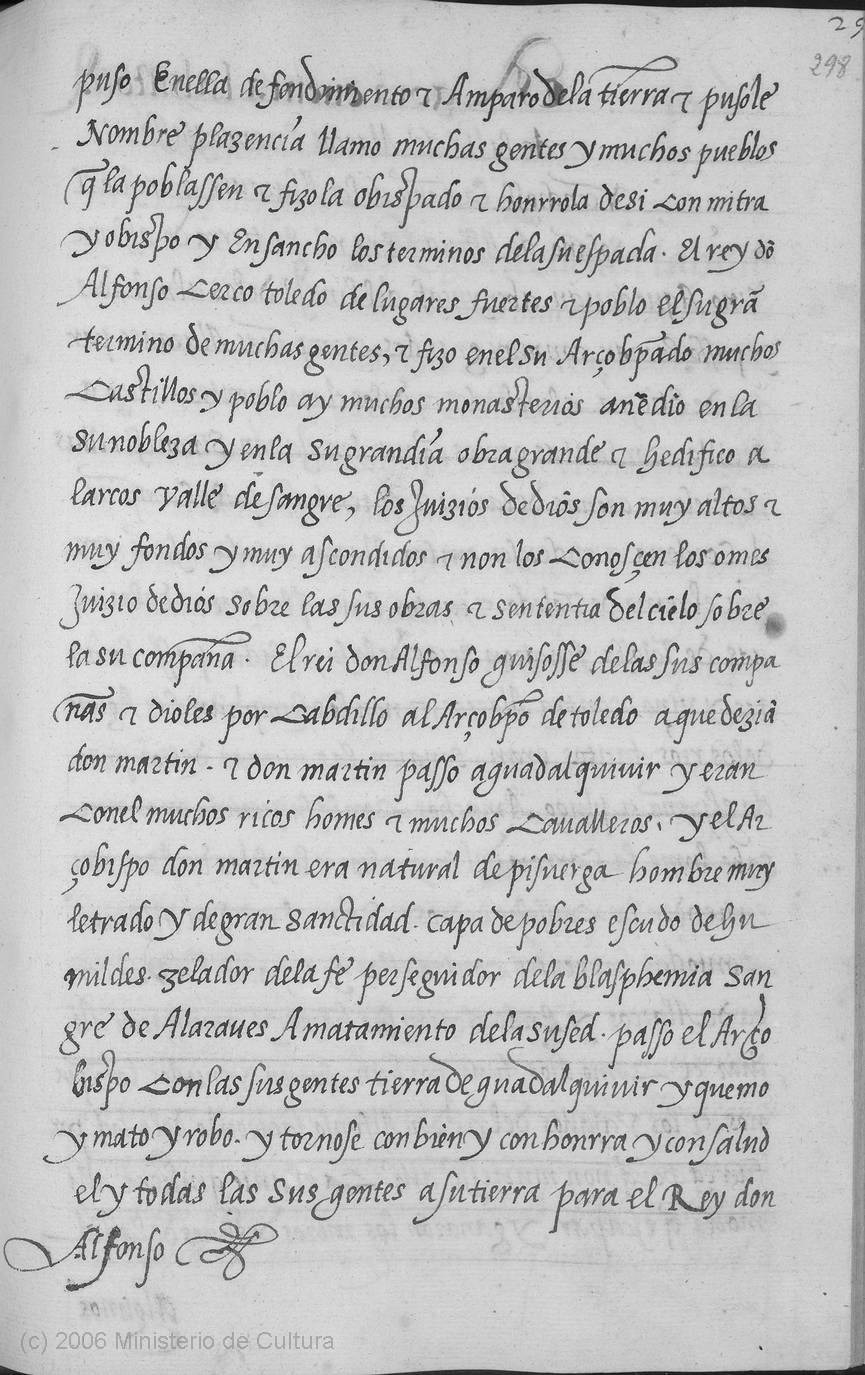 29
298
puso Enella defendimiento τ Amparo dela tierra τ pusole
Nombre plazencia llamo muchas gentes y muchos pueblos
q̃ la poblassen τ fizola obispado τ honrrola desi con mitra
y obispo y Ensancho los terminos dela su espada. El rey dõ
Alfonso Cerco toledo de lugares fuertes τ poblo el su grã
termino de muchas gentes, τ fizo enel su Arçobpãdo muchos
Castillos y poblo ay muchos monasterios añedio en la
su nobleza y en la su grandia obra grande τ hedifico a
larcos valle de sangre, los Juizios de diõs son muy altos τ
muy fondos y muy ascondidos τ non los Conosçen los omes
Juizio de dios sobre las sus obras τ sententia del cielo sobre
la su compaña. El rei don Alfonso guisosse de las sus compa
ñas τ dioles por Cabdillo al Arçobpõ de toledo a que deziã
don martin. τ don martin passo aguadalquivir y eran
Conel muchos ricos homes τ muchos Cavalleros. y el Ar
çobispo don martin era natural de pisuerga hombre muy
letrado y de gran sanctidad. capa de pobres escudo de hu
mildes. zelador dela fe perseguidor dela blasphemia San
gre de Alaraves Amatamiento dela su sed. passo el Arço
bispo Con las sus gentes tierra de guadalquivir y quemo
y mato y robo. y tornose con bien y con honrra y con salud
el y todas las sus gentes a su tierra para el Rey don
Alfonso
(c) 2006 Ministerio de Cultura